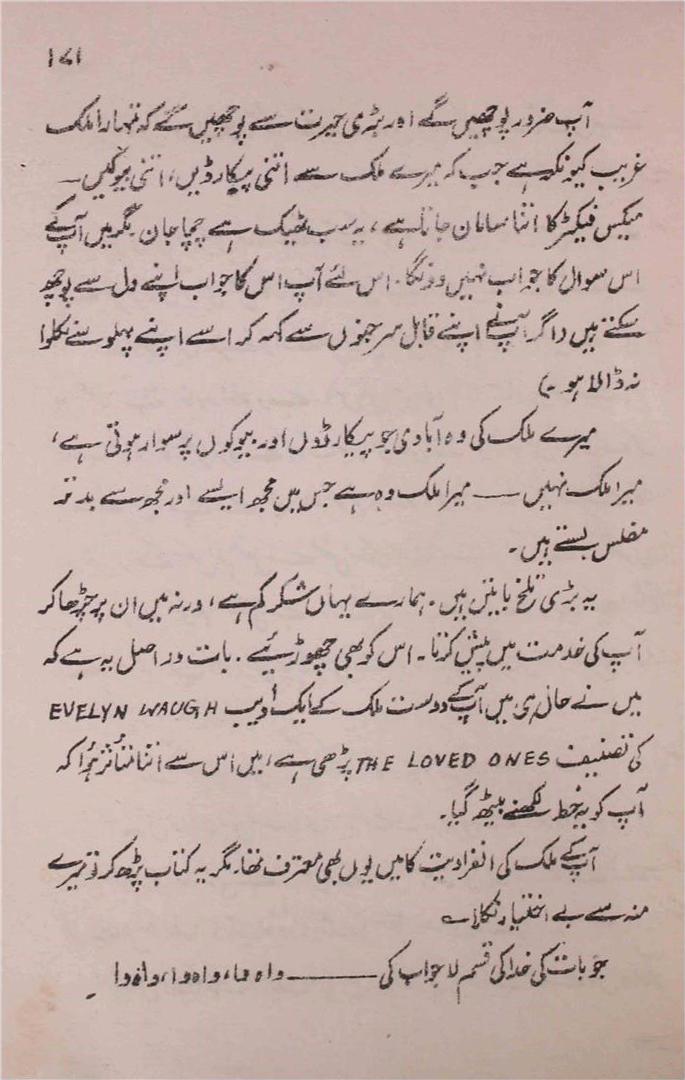 ۱۷۱
آپ ضرور پوچھیں گے اور بڑی حیرت سے پوچھیں گے کہ تمہارا ملک
غریب کیونکر ہے جب کہ میرے ملک سے اتنی پیکارڈیں، اتنی بیوکیں۔
میکس فیکٹر کا اتنا سامان جاتا ہے، یہ سب ٹھیک ہے چچا جان۔ مگر میں آپ کے
اس سوال کا جواب نہیں دونگا۔ اس لئے آپ اس کا جواب اپنے دل سے پوچھ
سکتے ہیں (اگر آپ نے اپنے قابل سرجنوں سے کہہ کر اسے اپنے پہلو سے نکلوا
نہ ڈالا ہو۔)
میرے ملک کی وہ آبادی جو پیکارڈوں اور بیوکوں پر سوار ہوتی ہے،
میرا ملک نہیں —— میرا ملک وہ ہے جس میں مجھ ایسے اور مجھ سے بدتر
مفلس بستے ہیں۔
یہ بڑی تلخ باتیں ہیں۔ ہمارے یہاں شکر کم ہے، ورنہ میں ان پر چڑھا کر
آپ کی خدمت میں پیش کرتا۔ اس کو بھی چھوڑیئے۔ بات دراصل یہ ہے کہ
میں نے حال ہی میں آپ کے دوست ملک کے ایک ادیب EVELYN WAUGH
کی تصنیف THE LOVED ONES پڑھی ہے، میں اس سے اتنا متاثر ہوا کہ
آپ کو یہ خط لکھنے بیٹھ گیا۔
آپ کے ملک کی انفرادیت کا میں یوں بھی معترف تھا۔ مگر یہ کتاب پڑھ کر تو میرے
منہ سے بے اختیار نکلا ؎
جو بات کی خدا کی قسم لاجواب کی —— واہ وا، واہ وا، واہ وا۔